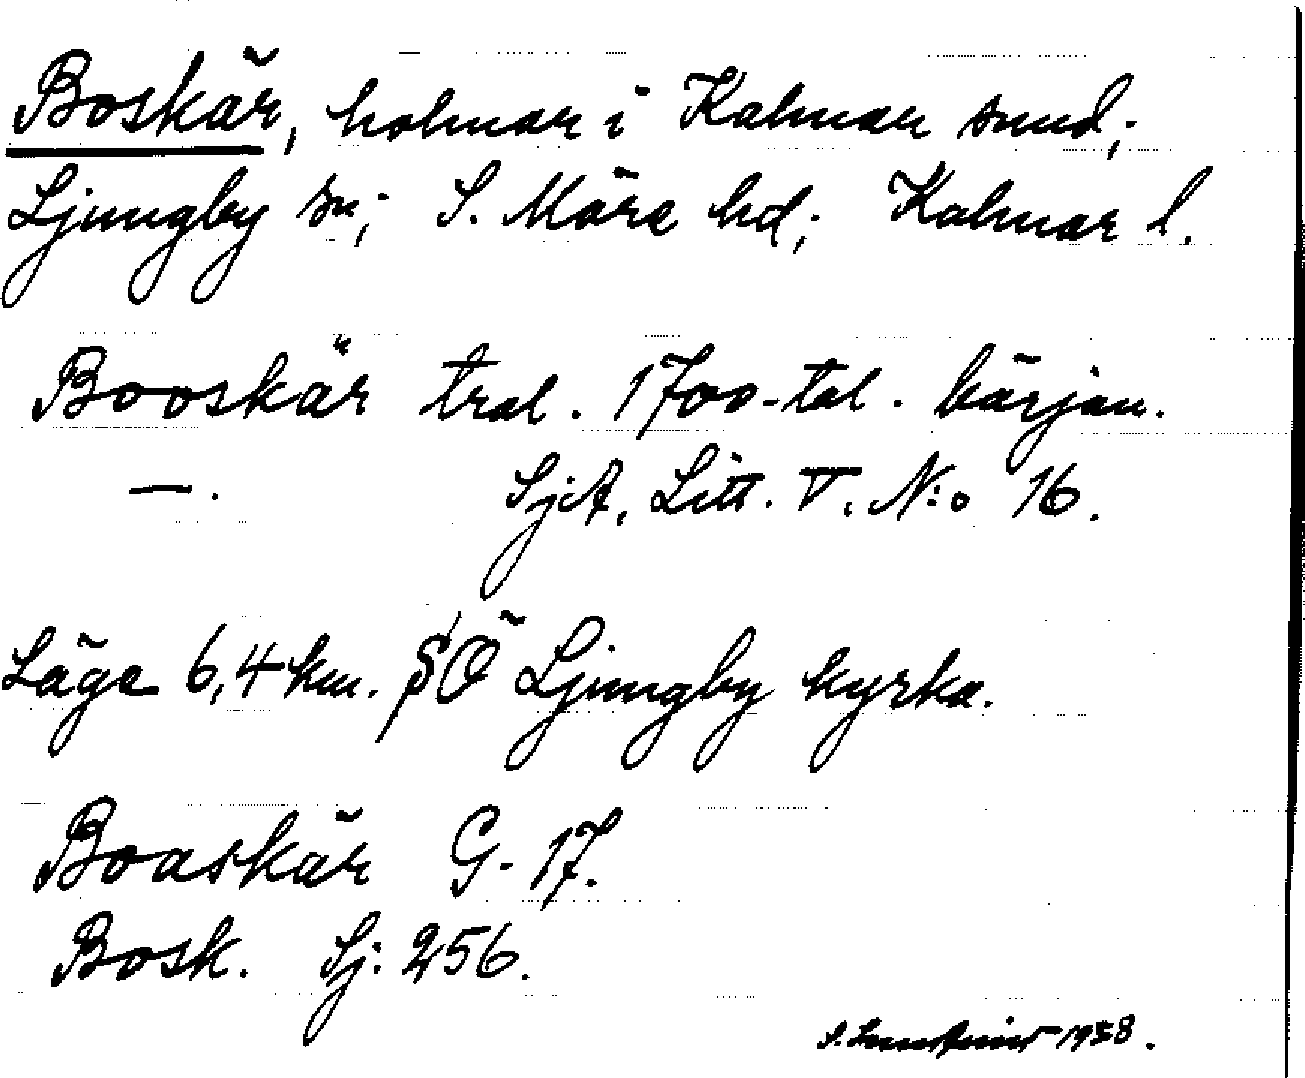 Boskär, holmar i Kalmar sund,;
Ljungby sn; S. Möre hd; Kalmar l.
Booskär tral. 1700-tal. början.
—. SjA, Litt. V. N:o 16.
Läge 6,4 km. SÖ Ljungby kyrka.
Boaskär G. 17.
Bosk. Sj. 256.
1938.